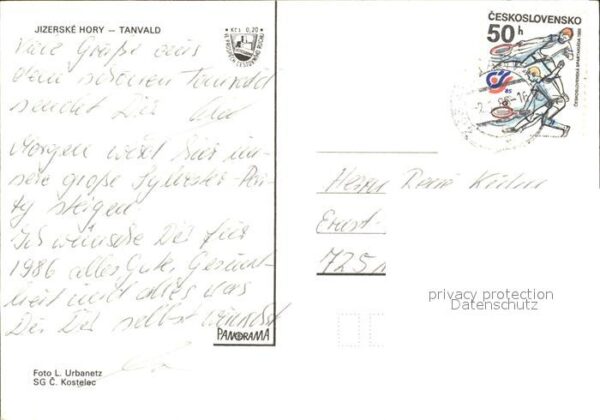 JIZERSKÉ HORY – TANVALD
Kčs 0,20
Viele Grüße aus
dem schönen Tanvald
sendet Dir
Morgen wird hier un-
sere große Sylvester-Par-
ty steigen
Ich wünsche Dir für
1986 alles Gute, Gesund-
heit und alles was
Du Dir selbst wünschst
PANORAMA
Foto L. Urbanetz
SG Č. Kostelec
ČESKOSLOVENSKO
50 h
ČESKOSLOVENSKÁ SPARTAKIÁDA 1985
85
Herrn René
Ernst-
725
privacy protection
Datenschutz